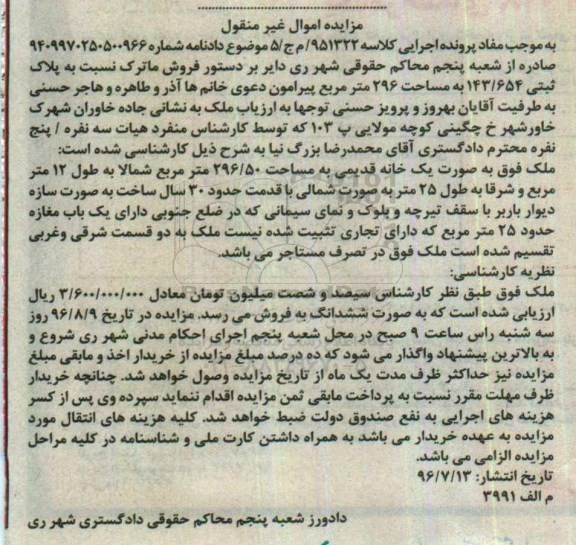 مزایده اموال غیر منقول
به موجب مفاد پرونده اجرایی کلاسه ۹۵۱۳۲۲/م ج/۵ موضوع دادنامه شماره ۹۴۰۹۹۷۰۲۵۰۵۰۰۹۶۶
صادره از شعبه پنجم محاکم حقوقی شهر ری دایر بر دستور فروش ماترک نسبت به پلاک
ثبتی ۱۴۳/۶۵۴ به مساحت ۲۹۶ متر مربع پیرامون دعوی خانم ها آذر و طاهره و هاجر حسنی
به طرفیت آقایان بهروز و پرویز حسنی توجها به ارزیاب ملک به نشانی جاده خاوران شهرک
خاورشهر خ چگینی کوچه مولایی پ ۱۰۳ که توسط کارشناس منفرد هیات سه نفره / پنج
نفره محترم دادگستری آقای محمدرضا بزرگ نیا به شرح ذیل کارشناسی شده است:
ملک فوق به صورت یک خانه قدیمی به مساحت ۲۹۶/۵۰ متر مربع شمالا به طول ۱۲ متر
مربع و شرقا به طول ۲۵ متر به صورت شمالی با قدمت حدود ۳۰ سال ساخت به صورت سازه
دیوار باربر با سقف تیرچه و بلوک و نمای سیمانی که در ضلع جنوبی دارای یک باب مغازه
حدود ۲۵ متر مربع که دارای تجاری تثبیت شده نیست ملک به دو قسمت شرقی وغربی
تقسیم شده است ملک فوق در تصرف مستاجر می باشد.
نظریه کارشناسی:
ملک فوق طبق نظر کارشناس سیصد و شصت میلیون تومان معادل ۳/۶۰۰/۰۰۰/۰۰۰ ریال
ارزیابی شده است که به صورت ششدانگ به فروش می رسد. مزایده در تاریخ ۹۶/۸/۹ روز
سه شنبه راس ساعت ۹ صبح در محل شعبه پنجم اجرای احکام مدنی شهر ری شروع و
به بالاترین پیشنهاد واگذار می شود که ده درصد مبلغ مزایده از خریدار اخذ و مابقی مبلغ
مزایده نیز حداکثر ظرف مدت یک ماه از تاریخ مزایده وصول خواهد شد. چنانچه خریدار
ظرف مهلت مقرر نسبت به پرداخت مابقی ثمن مزایده اقدام ننماید سپرده وی پس از کسر
هزینه های اجرایی به نفع صندوق دولت ضبط خواهد شد. کلیه هزینه های انتقال مورد
مزایده به عهده خریدار می باشد به همراه داشتن کارت ملی و شناسنامه در کلیه مراحل
مزایده الزامی می باشد.
تاریخ انتشار: ۹۶/۷/۱۳
م الف ۳۹۹۱
دادورز شعبه پنجم محاکم حقوقی دادگستری شهر ری